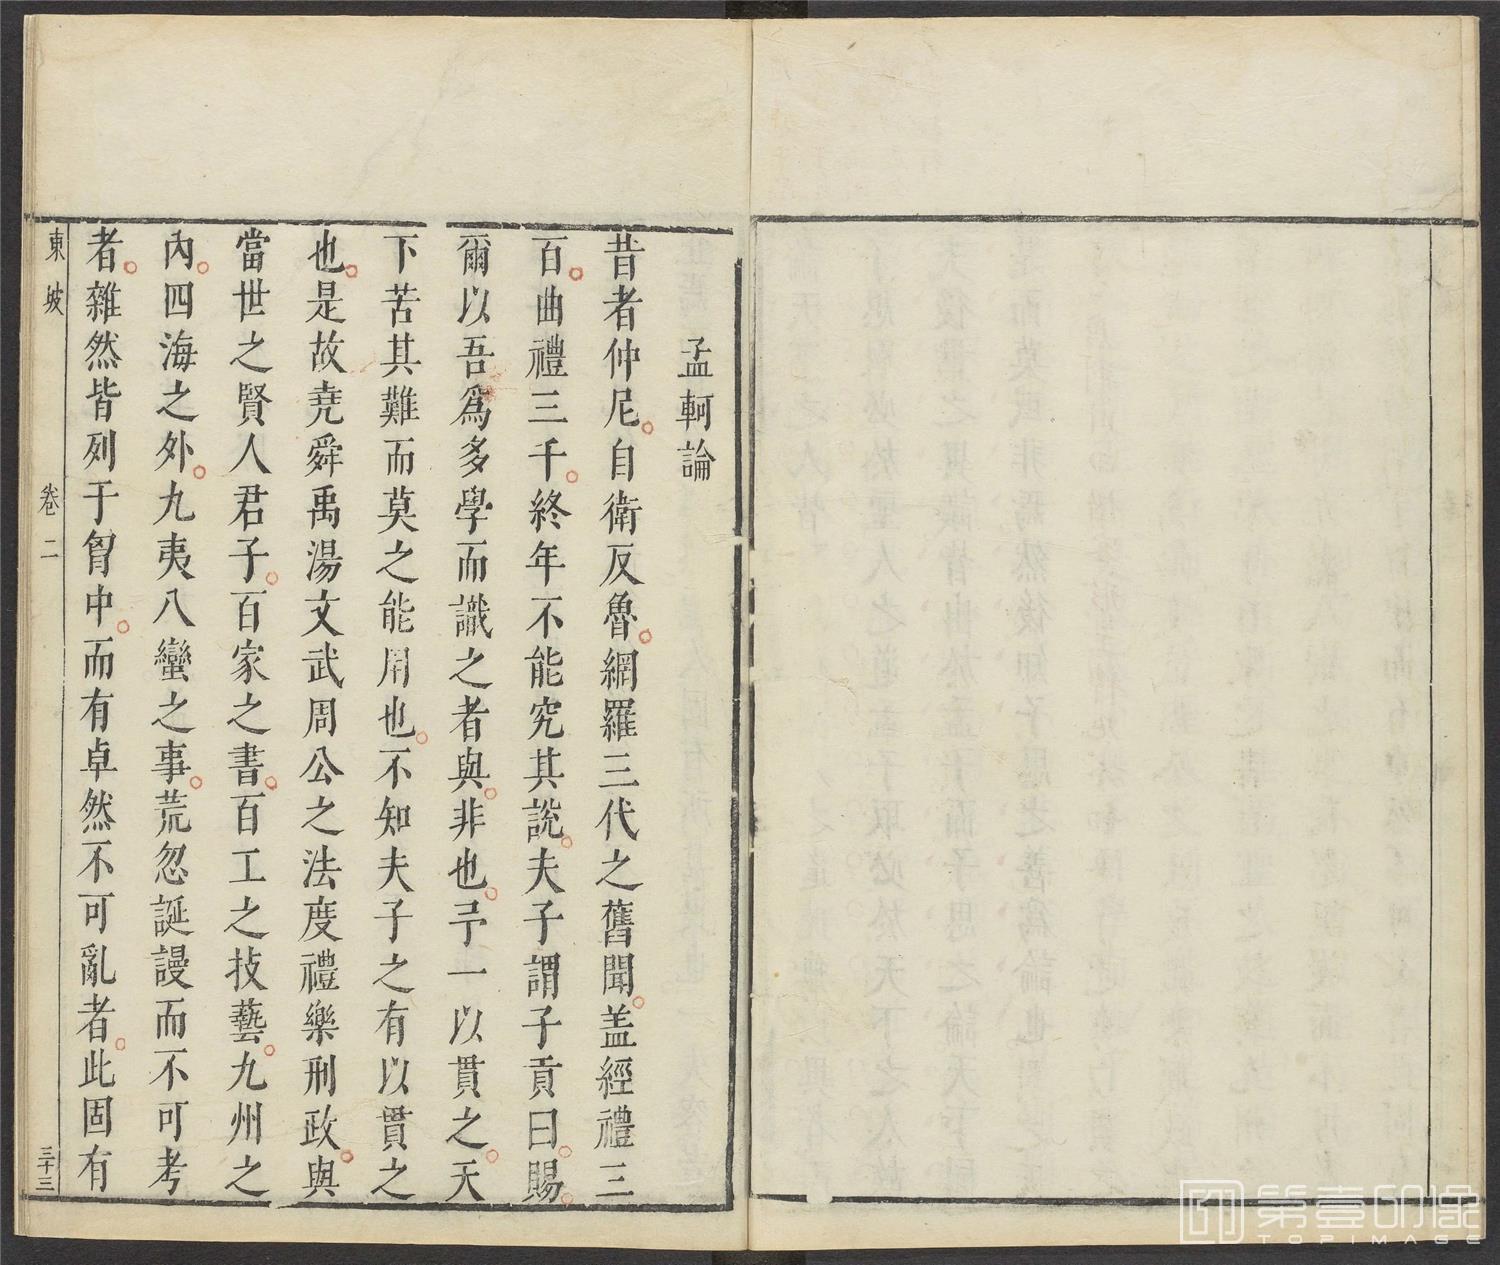 孟軻論
昔者仲尼自衛反魯網羅三代之舊聞盖經禮三
百曲禮三千終年不能究其説夫子謂子貢曰賜
爾以吾爲多學而識之者與非也予一以貫之天
下苦其難而莫之能用也不知夫子之有以貫之
也是故堯舜禹湯文武周公之法度禮樂刑政與
當世之賢人君子百家之書百工之技藝九州之
內四海之外九夷八蠻之事荒忽誕謾而不可考
者雜然皆列于胷中而有卓然不可亂者此固有
東坡 卷二 三十三
第壹印像
TOPIMAGE